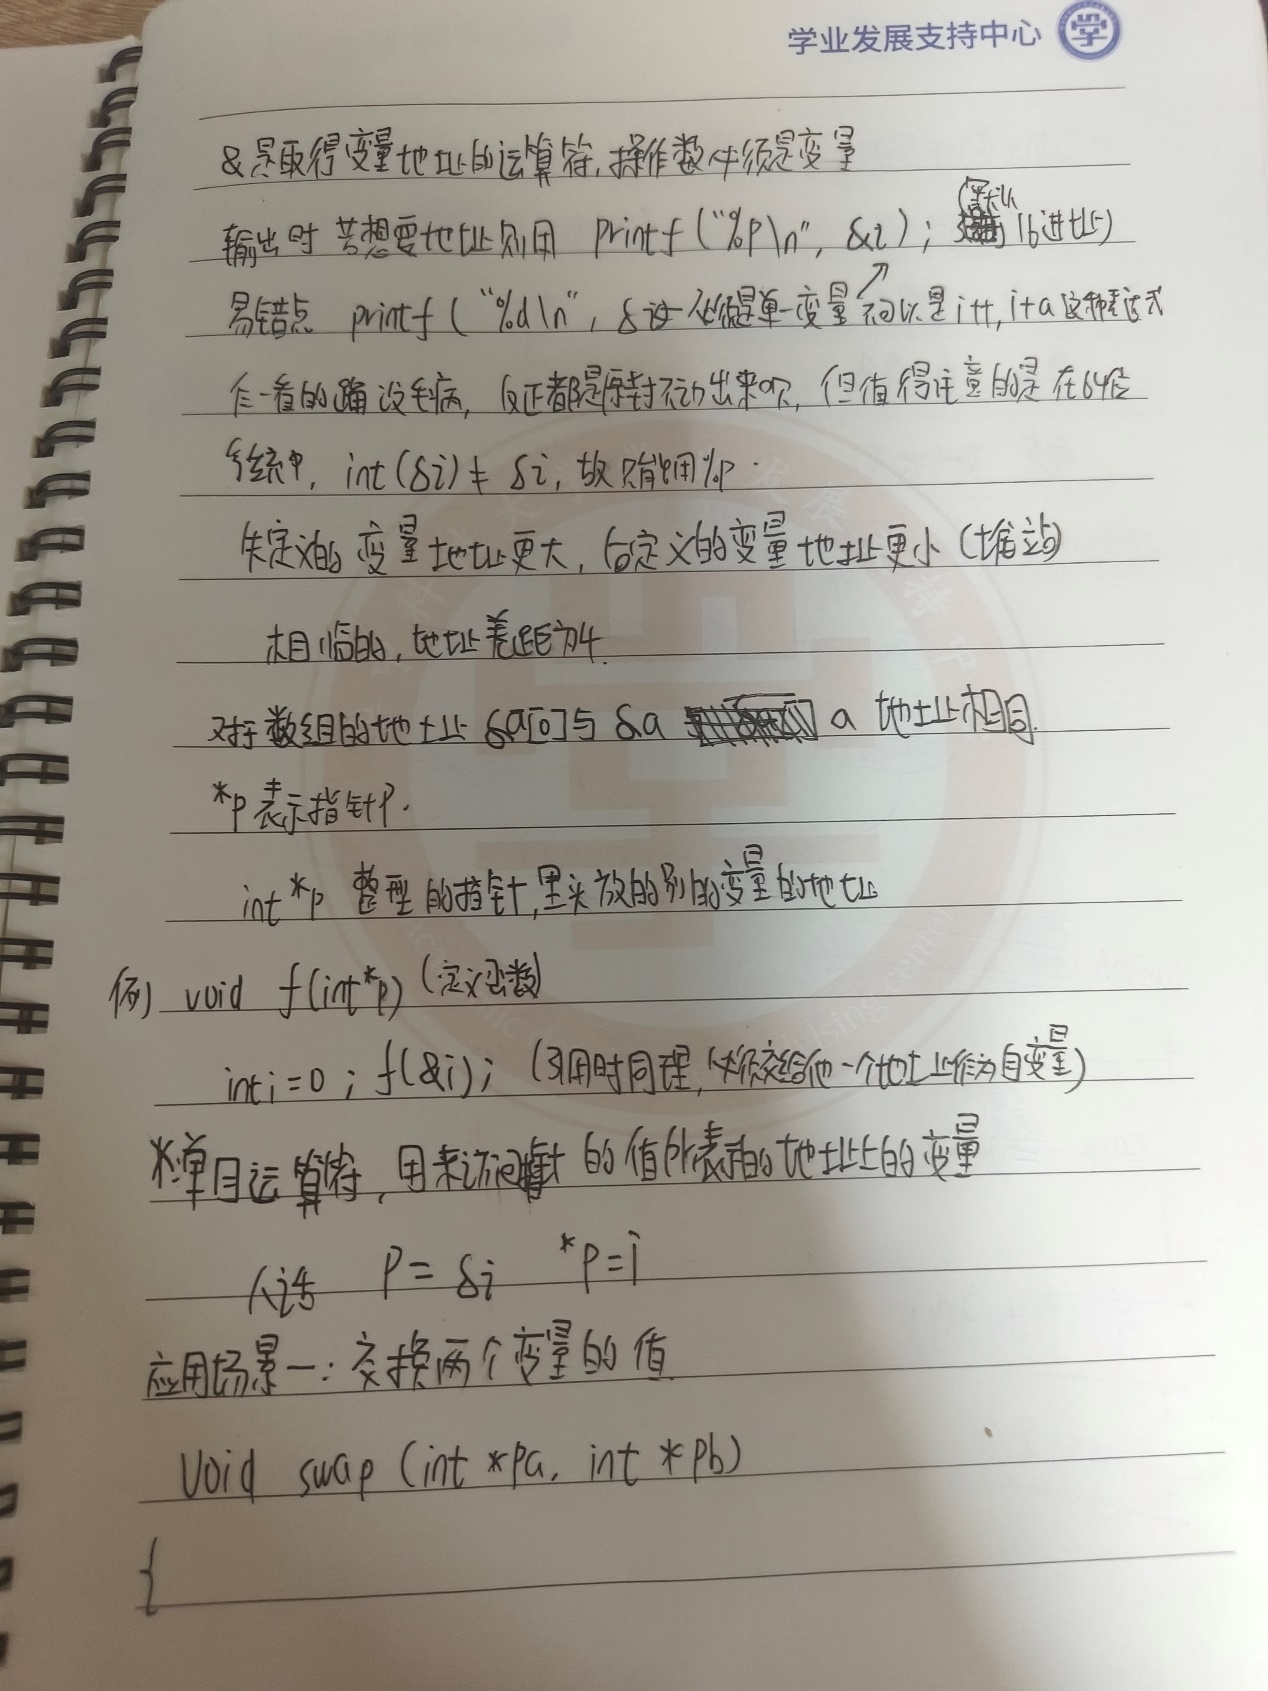 学业发展支持中心
&是取得变量地址的运算符,操作数必须是变量
(默认
输出时 若想要地址则用 printf("%p\n", &i); 16进址)
易错点 printf("%d\n", &i 必须是单一变量 不可以是i++, i+a这种表达式
乍一看的确没毛病, 反正都是原封不动出来呗, 但值得注意的是在64位
系统中, int(&i)≠ &i, 故只能用%p.
先定义的变量地址更大, 后定义的变量地址更小(堆站)
相临的,地址差距为4.
对于数组的地址 &a[0]与 &a a 地址相同.
*p 表示指针P.
int *p 整型的指针,里头放的别的变量的地址
例 void f(int *p) (定义函数)
int i=0; f(&i); (引用时同理,必须交给他一个地址作为自变量)
*:单目运算符,用来访问指针的值所表示的地址上的变量
人话 P= &i *P=i
应用场景一:交换两个变量的值.
void swap (int *pa, int *pb)
{